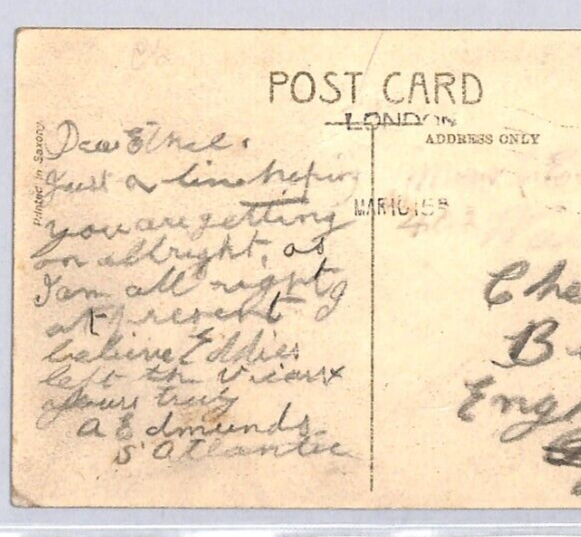 POST CARD
LONDON
ADDRESS ONLY
Printed in Saxony
Dear Ethel.
Just a line hoping
you are getting
on allright, as
I am all right
at present I
believe Eddies
left the
yours truly
A Edmunds
S Atlantic
MAR 10 15
Che
B
Eng